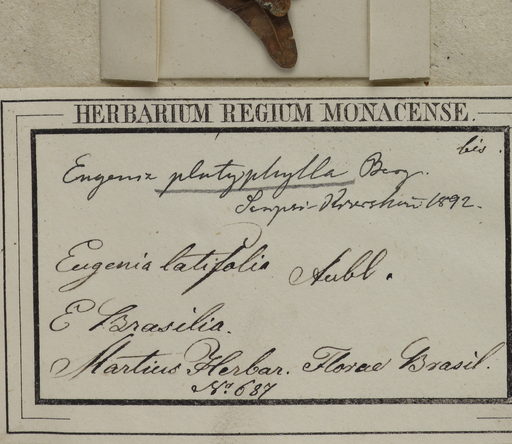 HERBARIUM REGIUM MONACENSE.
bis.
Eugenia platyphylla Berg.
Scripsi 1892.
Eugenia latifolia Aubl.
E Brasilia.
Martius Herbar. Florae Brasil.
No. 687